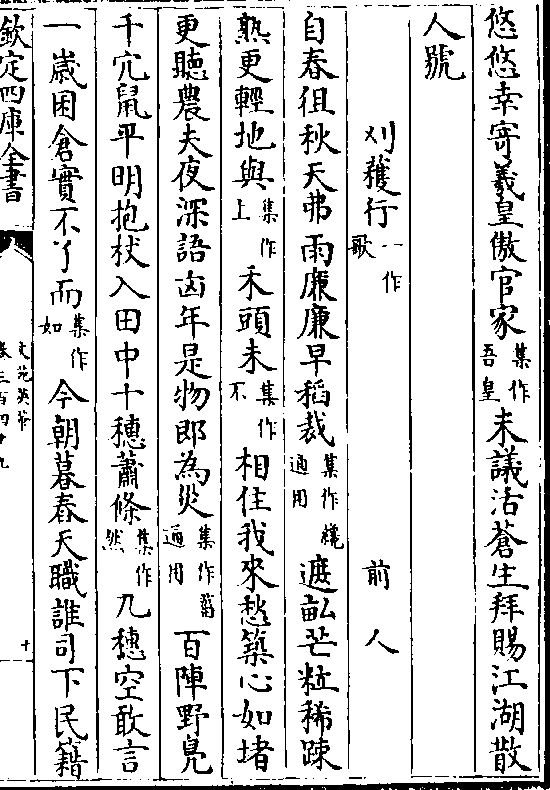 悠悠幸寄羲皇傲官家集作吾皇未議活蒼生拜賜江湖散
人號
刈穫行一作歌 前人
自春徂秋天弗雨廉廉早稻裁集作纔通用遮畝芒粒稀踈
熟更輕地與集作上禾頭未集作不相住我來愁築心如堵
更聽農夫夜深語凶年是物即為災集作菑通用百陣野鳧
千穴鼠平明抱杖入田中十穗蕭條集作然九穗空敢言
一歲囷倉實不了而集作如今朝暮舂天職誰司下民籍
欽定四庫全書
文苑英華
卷三百四十九
十